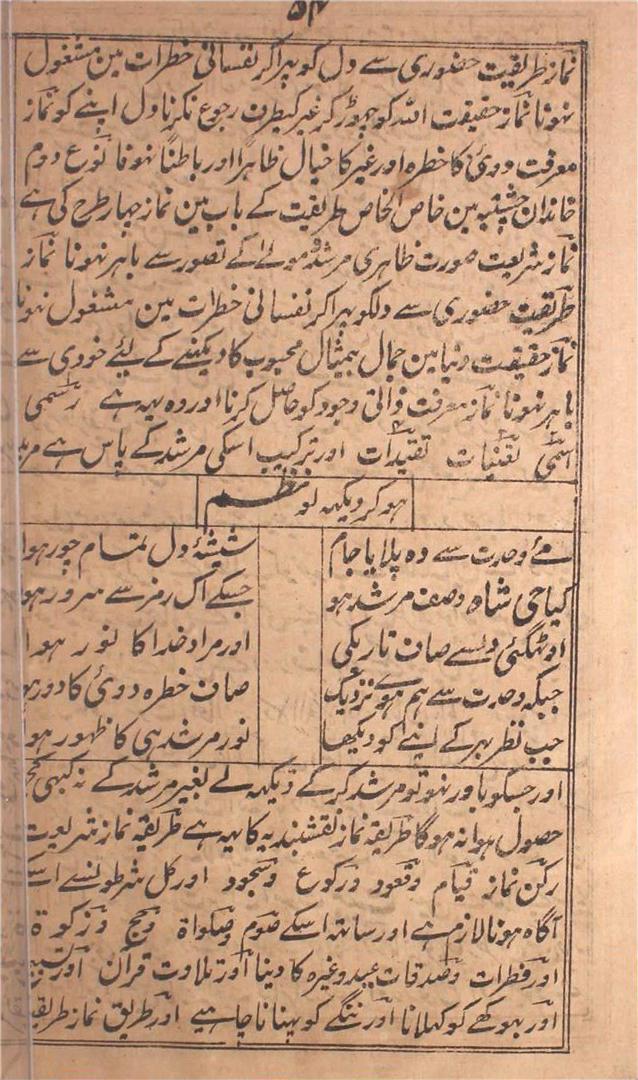 ۵۴
نماز طریقت حضوری سے دل کو پھراکر نفسانی خطرات مین مشغول
نہونا نماز حقیقت اللہ کو چھوڑ کر غیر کیطرف رجوع نکرنا دل اپنے کو نماز
معرفت دوئی کا خطرہ اور غیر کا خیال ظاہرا اور باطناً نہونا نوع دوم
خاندان چشتیہ مین خاص الخاص طریقیت کے باب مین نماز چہار طرح کی ہے
نماز شریعت صورت ظاہری مرشد و مولے کے تصور سے باہر نہونا نماز
طریقیت حضوری سے دلکو پھراکر نفسانی خطرات مین مشغول نہونا
نماز حقیقت دنیا مین جمال بیمثال محبوب کا دیکھنے کے لیے خودی سے
باہر نہونا نماز معرفت ذاتی وجود کو حاصل کرنا اور وہ یہہ ہے رسمی
اسمی تعینات تقیدات اور ترکیب اسکی مرشد کے پاس ہے
ہوکر دیکھہ لو نظم
مئے وحدت سے وہ پلایا جام شیشۂ دل تمام چور ہوا
کیا حی شاہ وصف مرشد ہو جسکے اک رمز سے سرور ہو
اوٹھگئی دلسے صاف تاریکی اور مراد خدا کا نور ہوا
جبکہ وحدت سے ہم ہوے نزدیک صاف خطرہ دوئی کا دور ہو
جب نظر بہر کے اپنے کو دیکھا نور مرشد ہی کا ظہور ہو
اور جسکو باور نہو تو مرشد کر کے دیکھہ لے بغیر مرشد کے نہ کبھی کچھ
حصول ہوا نہ ہوگا طریقہ نماز نقشبندیہ کا یہہ ہے طریقہ نماز شریعت
رکن نماز قیام وقعود ورکوع وسجود اور کل شرطونسے اسکے
آگاہ ہونا لازم ہے اور ساتھہ اسکے صوم وصلواۃ وحج وزکوۃ
اور فطرات وصدقات عید وغیرہ کا دینا اور تلاوت قرآن اور تسبیح
اور بھوکھے کو کھلانا اور ننگے کو پہنانا چاہیے اور طریق نماز طریقت